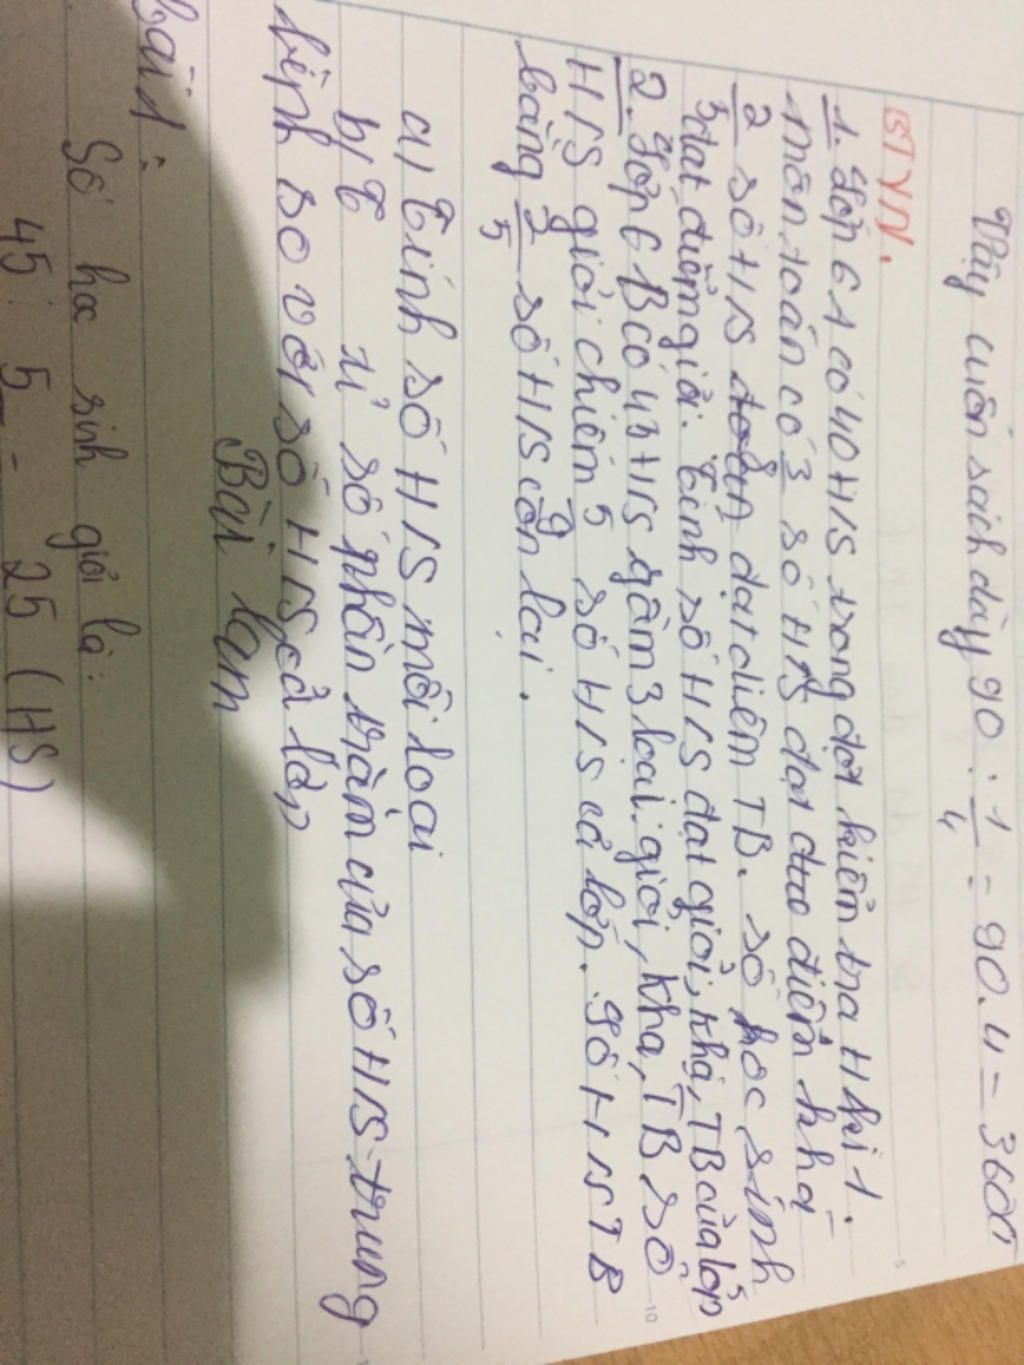 Vậy cuốn sách dày 90 : 1/4 = 90.4 = 360
BTVN.
1. Lớp 6A có 40 HS trong đợt kiểm tra HKì 1.
môn toán có 3 số HS đạt điểm khá
2 số HS đạt điểm TB. số học sinh
3 đạt điểm giỏi. Tính số HS đạt giỏi, khá, TB của lớp
2. Lớp 6B có 45 HS gồm 3 loại: giỏi, khá, TB số
HS giỏi chiếm 5/9 số HS cả lớp. Số HS TB
bằng 2/5 số HS còn lại.
a) Tính số HS mỗi loại
b) T tỉ số phần trăm của số HS trung
bình so với số HS cả lớp
Bài làm
Bài 1:
Số học sinh giỏi là:
45 : 5 = 25 (HS)